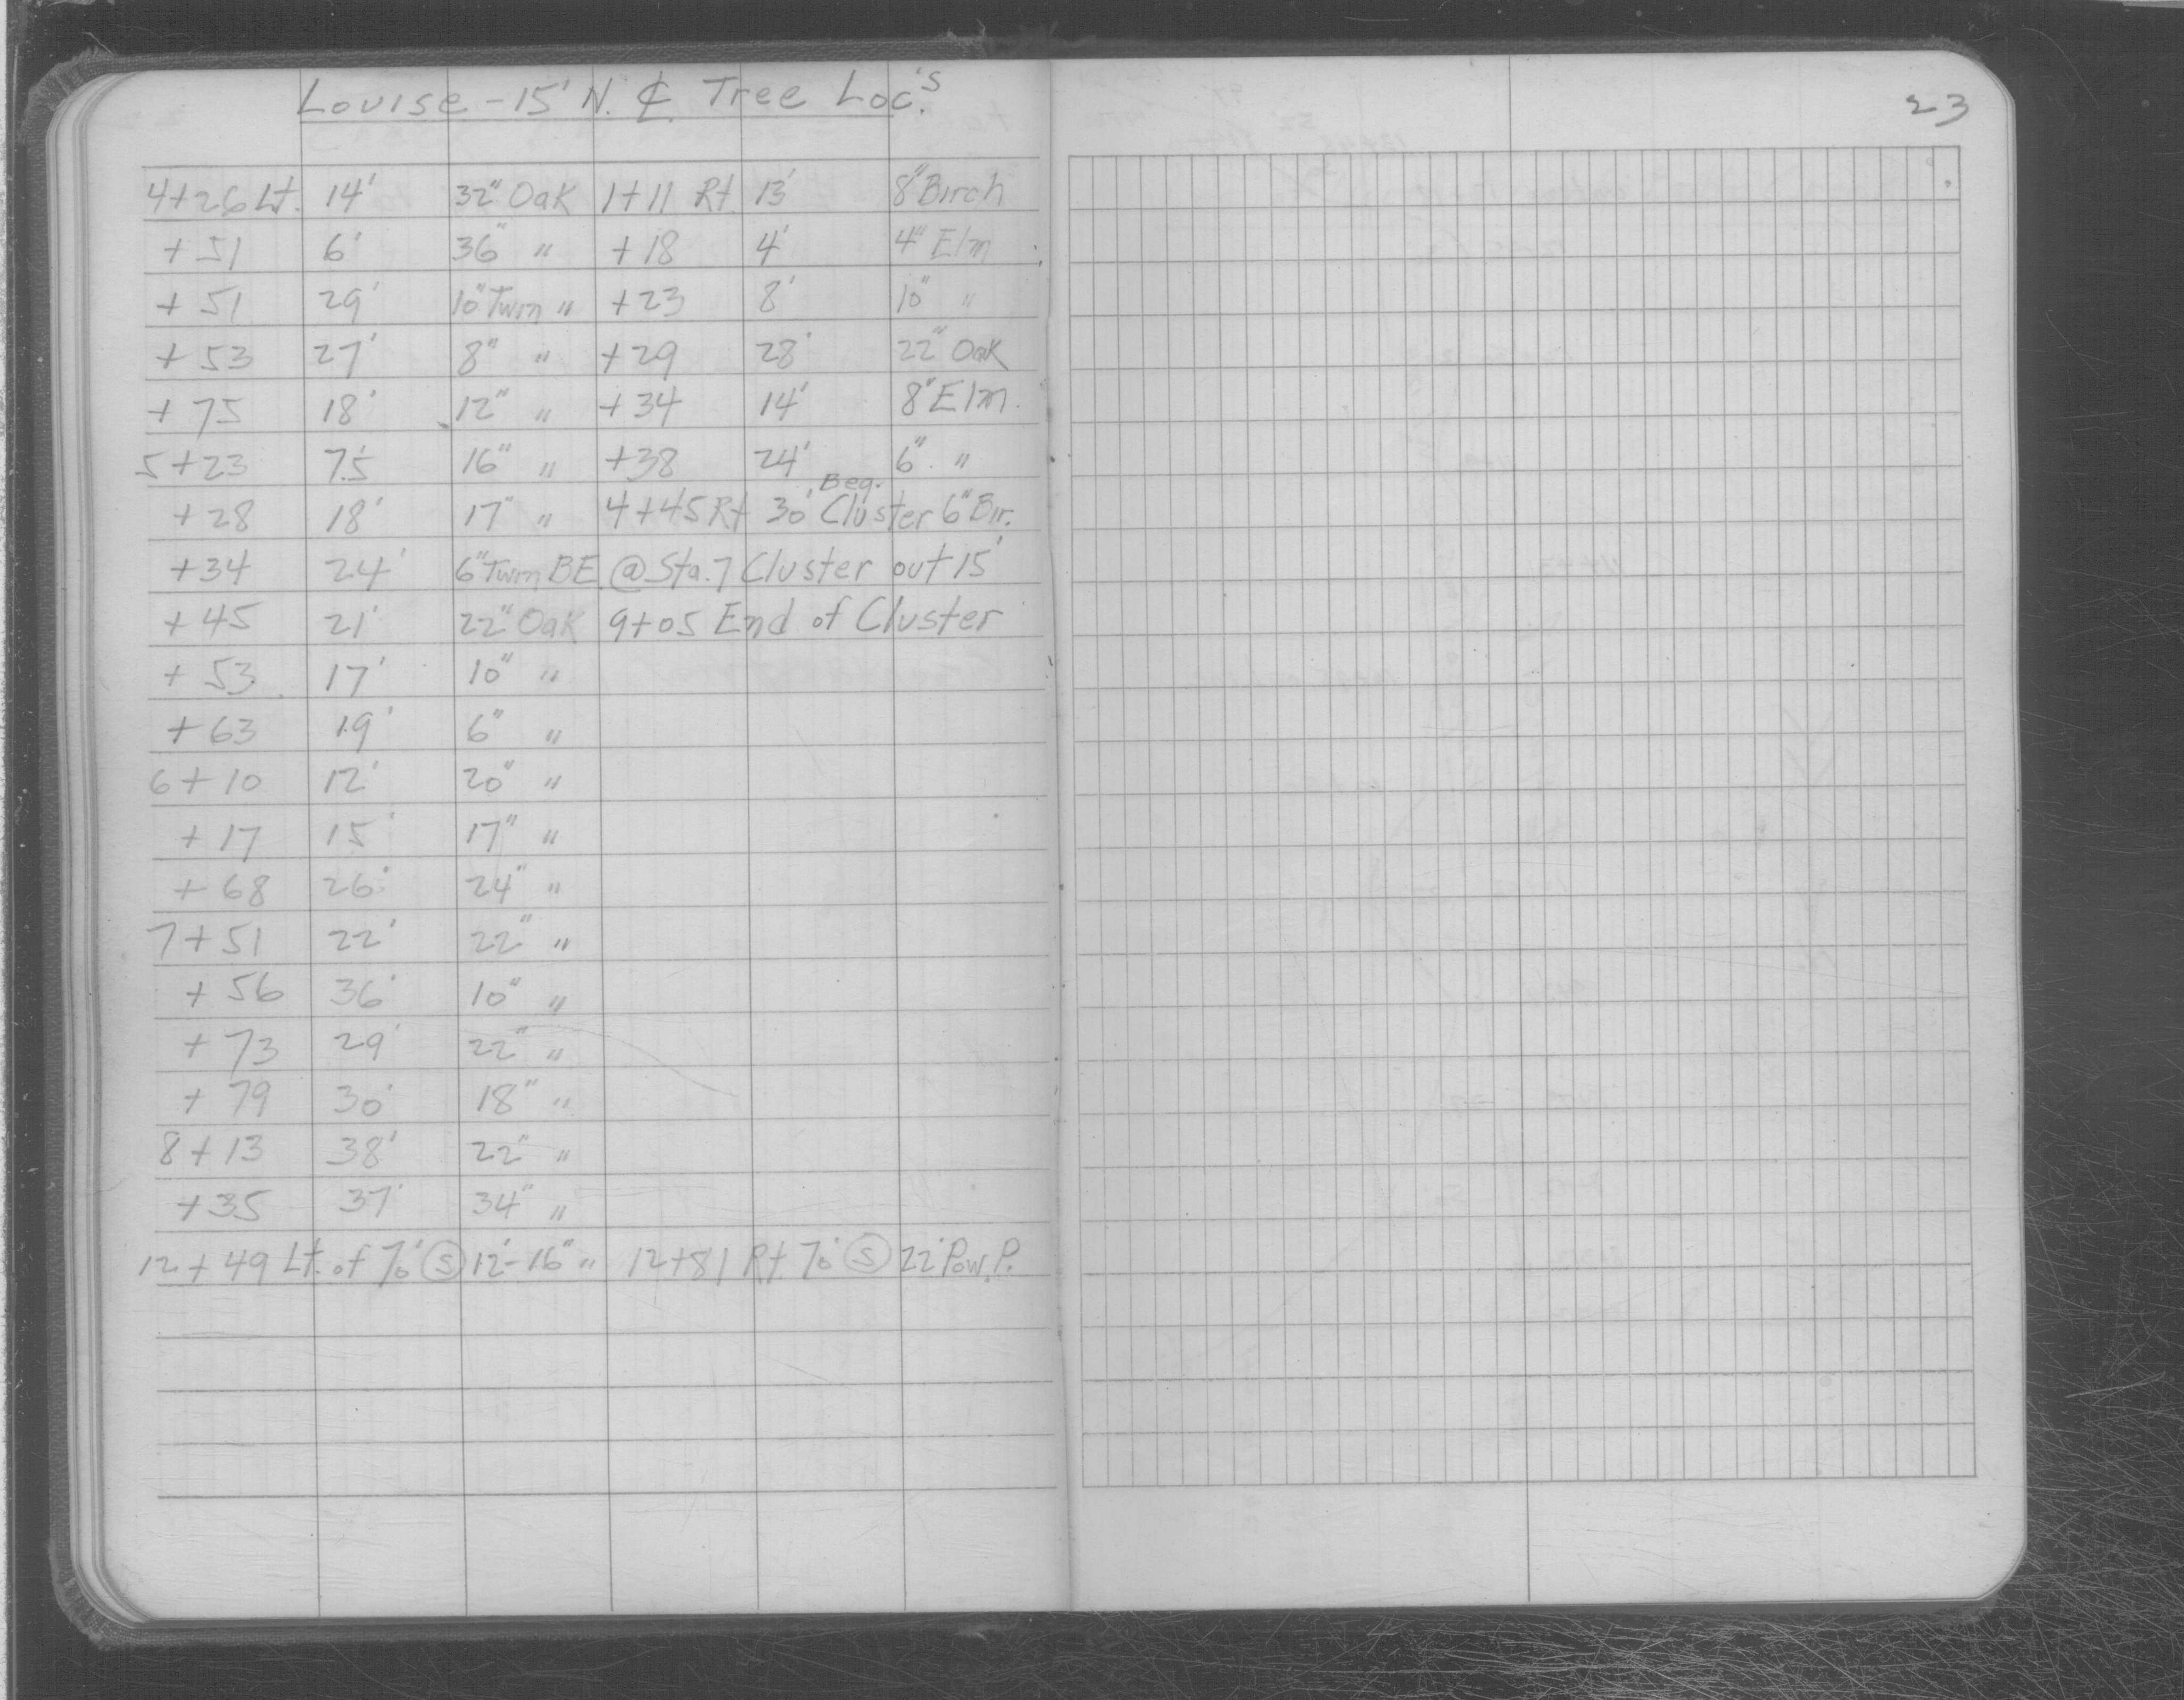 Louise - 15' N. ℄ Tree Loc.'s
23
4+26 Lt. 14' 32" Oak 1+11 Rt. 13' 8" Birch
+51 6' 36" " +18 4' 4" Elm
+51 29' 10" Twin " +23 8' 10" "
+53 27' 8" " +29 28' 22" Oak
+75 18' 12" " +34 14' 8" Elm.
5+23 7.5' 16" " +38 24' 6" "
+28 18' 17" " 4+45 Rt 30' Beg. Cluster 6" Bir.
+34 24' 6" Twin BE @ Sta. 7 Cluster out 15'
+45 21' 22" Oak 9+05 End of Cluster
+53 17' 10" "
+63 19' 6" "
6+10 12' 20" "
+17 15' 17" "
+68 26' 24" "
7+51 22' 22" "
+56 36' 10" "
+73 29' 22" "
+79 30' 18" "
8+13 38' 22" "
+35 37' 34" "
12+49 Lt. of 70' Ⓢ 12'-16" " 12+81 Rt. 70' Ⓢ 22' Pow. P.